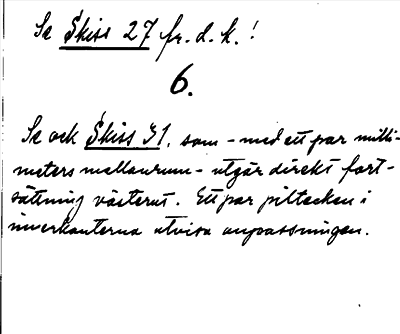 Se Skiss 27 fr. d. k.!
6.
Se ock Skiss 31, som - med ett par milli-
meters mellanrum - utgär direkt fort-
sättning västerut. Ett par piltecken i
innerkanterna utvisa anpassningen.